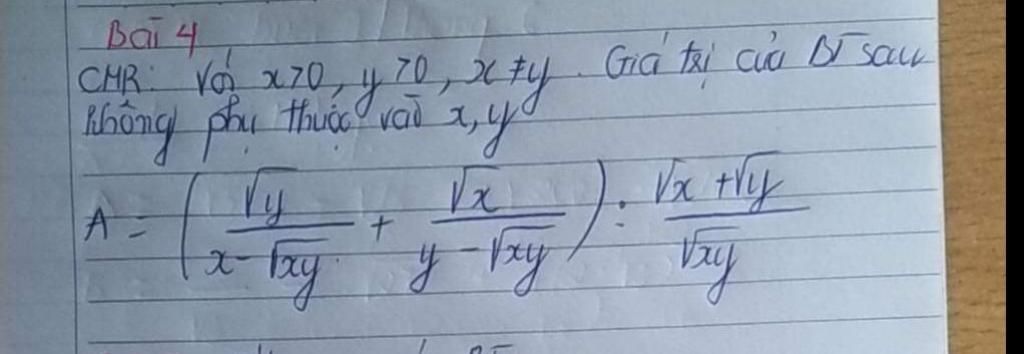 Bài 4
CMR: Với x>0, y>0, x≠y. Giá trị của BT sau
không phụ thuộc vào x, y
A = (√y/(x-√xy) + √x/(y-√xy)) : (√x+√y)/√xy